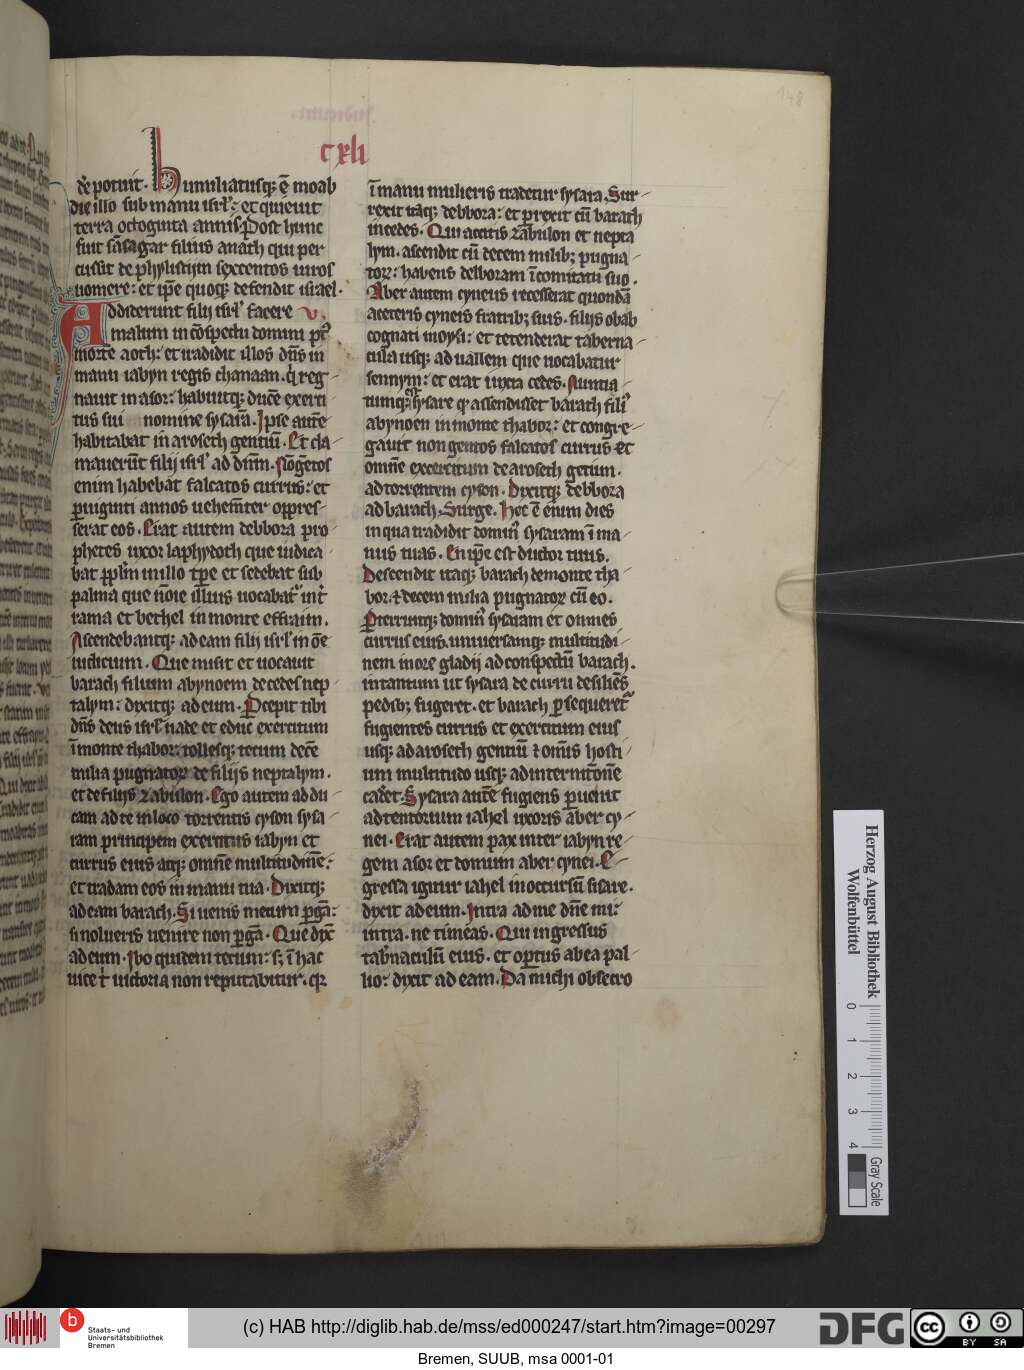 148
cxli
de potuit. humiliatusq; ē moab
die illo sub manu isrl': et quieuit
terra octoginta annis. Post hunc
fuit sāsagar filius anath qui per
cussit de phylistijm sexcentos uiros
uomere: et ip̄e quoq; defendit israel.
Addiderunt filij isrl' facere v.
malum in cōspectu domini pt'
morte aoth: et tradidit illos dn̄s in
manu iabyn regis chanaan. q̇ reg-
nauit in asor: habuitq; ducē exerci
tus sui nomine sysarā. Ipse autē
habitabat in aroseth gentiū. Et cla-
mauerūt filij isrl' ad dn̄m. Nōgētos
enim habebat falcatos currus: et
p uiginti annos uehem̄ter oppres-
serat eos. Erat autem debbora pro-
phetes uxor laphydoth que iudica-
bat pplm̄ in illo tp̄e et sedebat sub
palma que nōie illius uocabat' int'
rama et bethel in monte effraim.
Ascendebantq; ad eam filij isrl' in ōe
iudicium. Que misit et uocauit
barach filium abynoem de cedes nep-
talym: dyxitq; ad eum. Pcepit tibi
dn̄s deus isrl' uade et educ exercitum
ī monte thabor: tollesq; tecum decē
milia pugnator de filijs neptalym.
et de filijs zabulon. Ego autem addu-
cam ad te in loco torrentis cyson sysa-
ram principem exercitus iabyn et
currus eius atq; omnē multitudinē:
et tradam eos in manu tua. Dixitq;
ad eam barach. Si uenis mecum p̄gā:
si nolueris uenire non p̄gā. Que dyx
ad eum. Ibo quidem tecum: s; ī hac
uice t' uictoria non reputabitur. qr
ī manu mulieris tradetur sysara. Sur-
rexit itaq; debbora: et prexit cū barach
in cedes. Qui accitis zabulon et nepta
lym. ascendit cū decem milib; pugna-
tor: habens delboram ī comitatu suo.
Aber autem cyneus recesserat quondā
a ceteris cyneis fratrib; suis. filijs obab
cognati moysi: et tetenderat taberna-
cula usq; ad uallem que uocabatur
sennym: et erat iuxta cedes. Nuntia-
tumq; sysare q' ascendisset barach fili'
abynoen in monte thabor: et congre-
gauit non gentos falcatos currus et
omnē exercitum de aroseth getium.
ad torrentem cyson. Dixitq; debbora
ad barach. Surge. Hec ē enim dies
in qua tradidit domin' sysaram ī ma-
nus tuas. En ip̄e est ductor tuus.
Descendit itaq; barach de monte tha-
bor. & decem milia pugnator cū eo.
Pterruitq; domin' sysaram et omnes
currus eius. uniuersamq; multitudi-
nem in ore gladij ad conspectū barach.
intantum ut sysara de curru desiliēs
pedib; fugeret. et barach p̄sequeret'
fugientes currus et exercitum eius
usq; ad aroseth gentiū & omīs hosti-
um multitudo usq; ad internicōnē
cad'et. Sysara autē fugiens puenit
ad tentorium iahel uxoris aber cy-
nei. Erat autem pax inter iabyn re-
gem asor et domum aber cynei. E-
gressa igitur iahel in occursū sisare.
dyxit ad eum. Intra ad me dn̄e mi:
intra. ne timeas. Qui ingressus
tab'naculū eius. et optus ab ea pal-
lio: dyxit ad eam. Da michi obsecro
Herzog August Bibliothek
Wolfenbüttel
0 1 2 3 4
Gray Scale
b
Staats- und
Universitätsbibliothek
Bremen
(c) HAB http://diglib.hab.de/mss/ed000247/start.htm?image=00297
DFG
cc BY SA
Bremen, SUUB, msa 0001-01